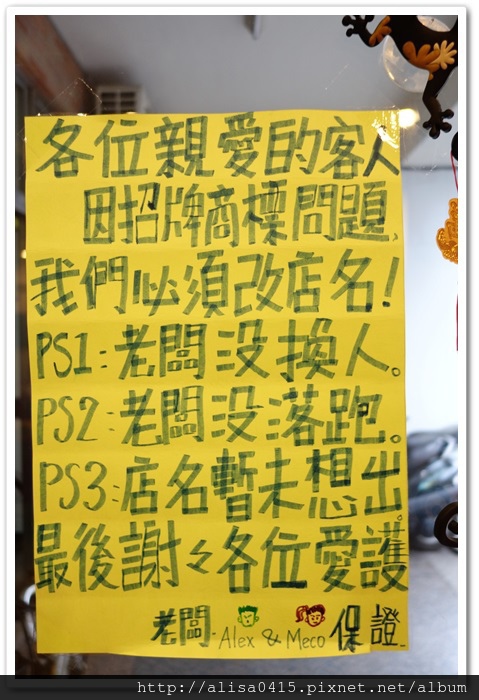 各位親愛的客人
因招牌商標問題,
我們必須改店名!
PS1:老闆沒換人。
PS2:老闆沒落跑。
PS3:店名暫未想出。
最後謝々各位愛護
老闆 Alex & Meco 保證
http://alisa0415.pixnet.net/album